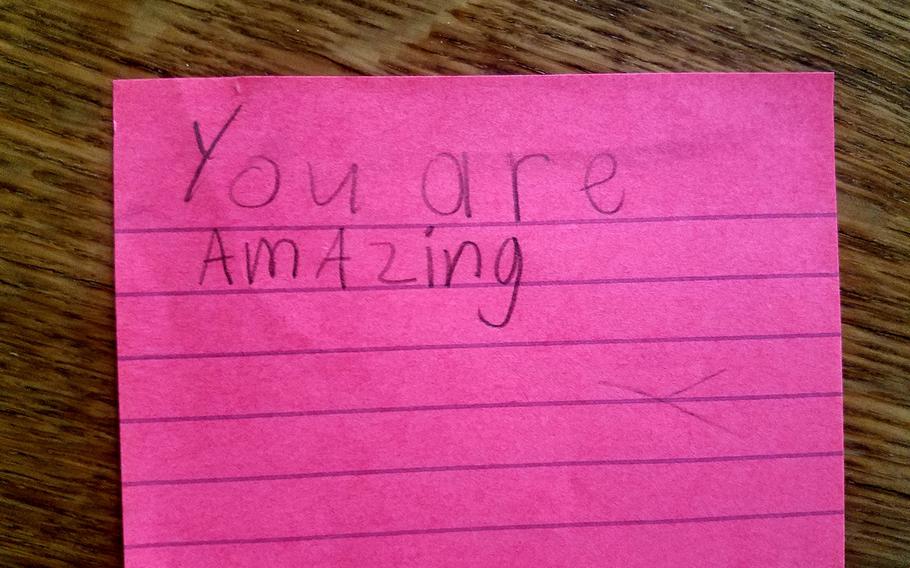 You are
AmAzing